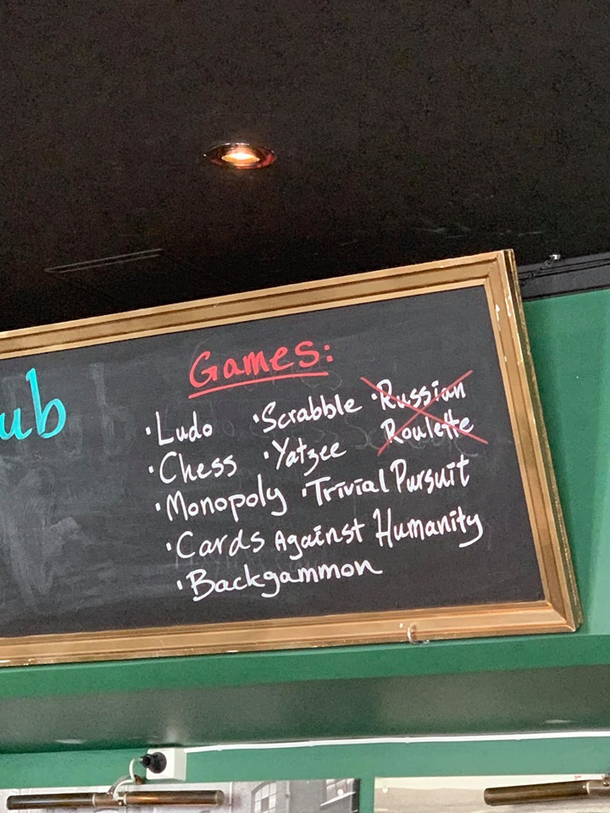 ub
Games:
·Ludo ·Scrabble ·Russian Roulette
·Chess ·Yatzee
·Monopoly ·Trivial Pursuit
·Cards Against Humanity
·Backgammon